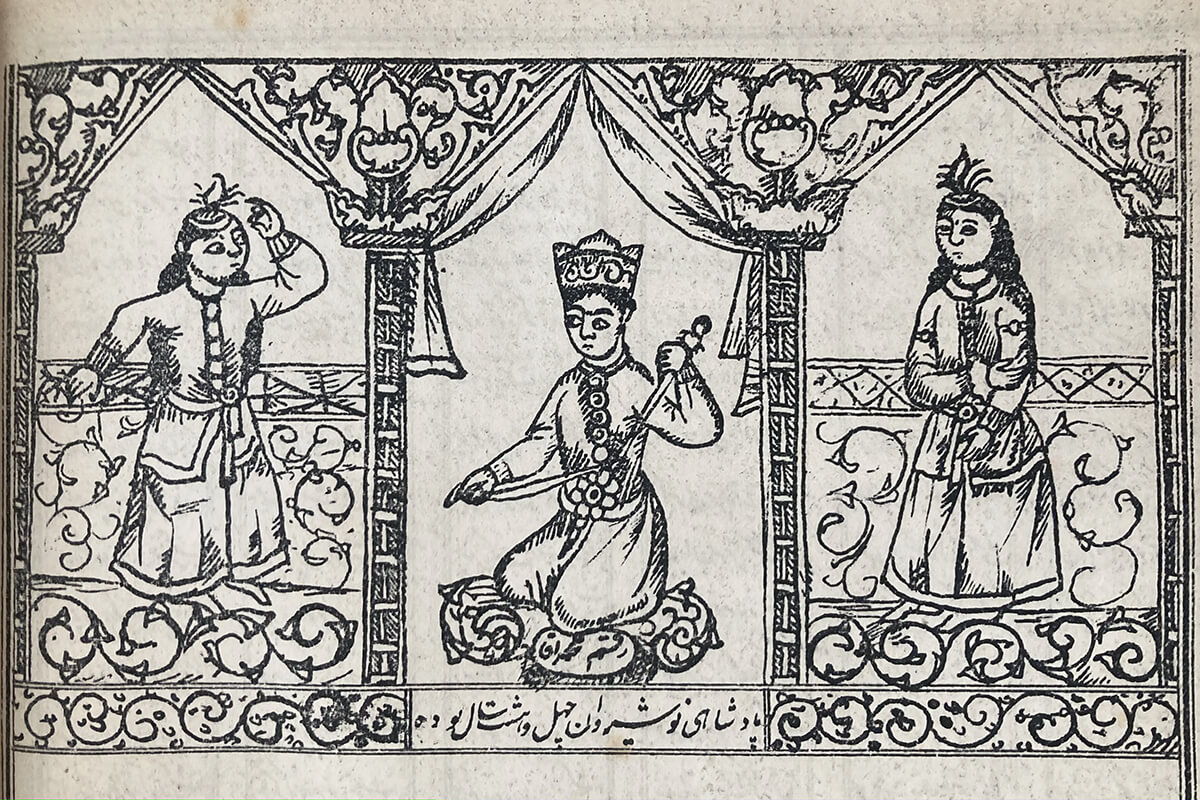 پادشاهی نوشیروان چهل وهشت سال بوده